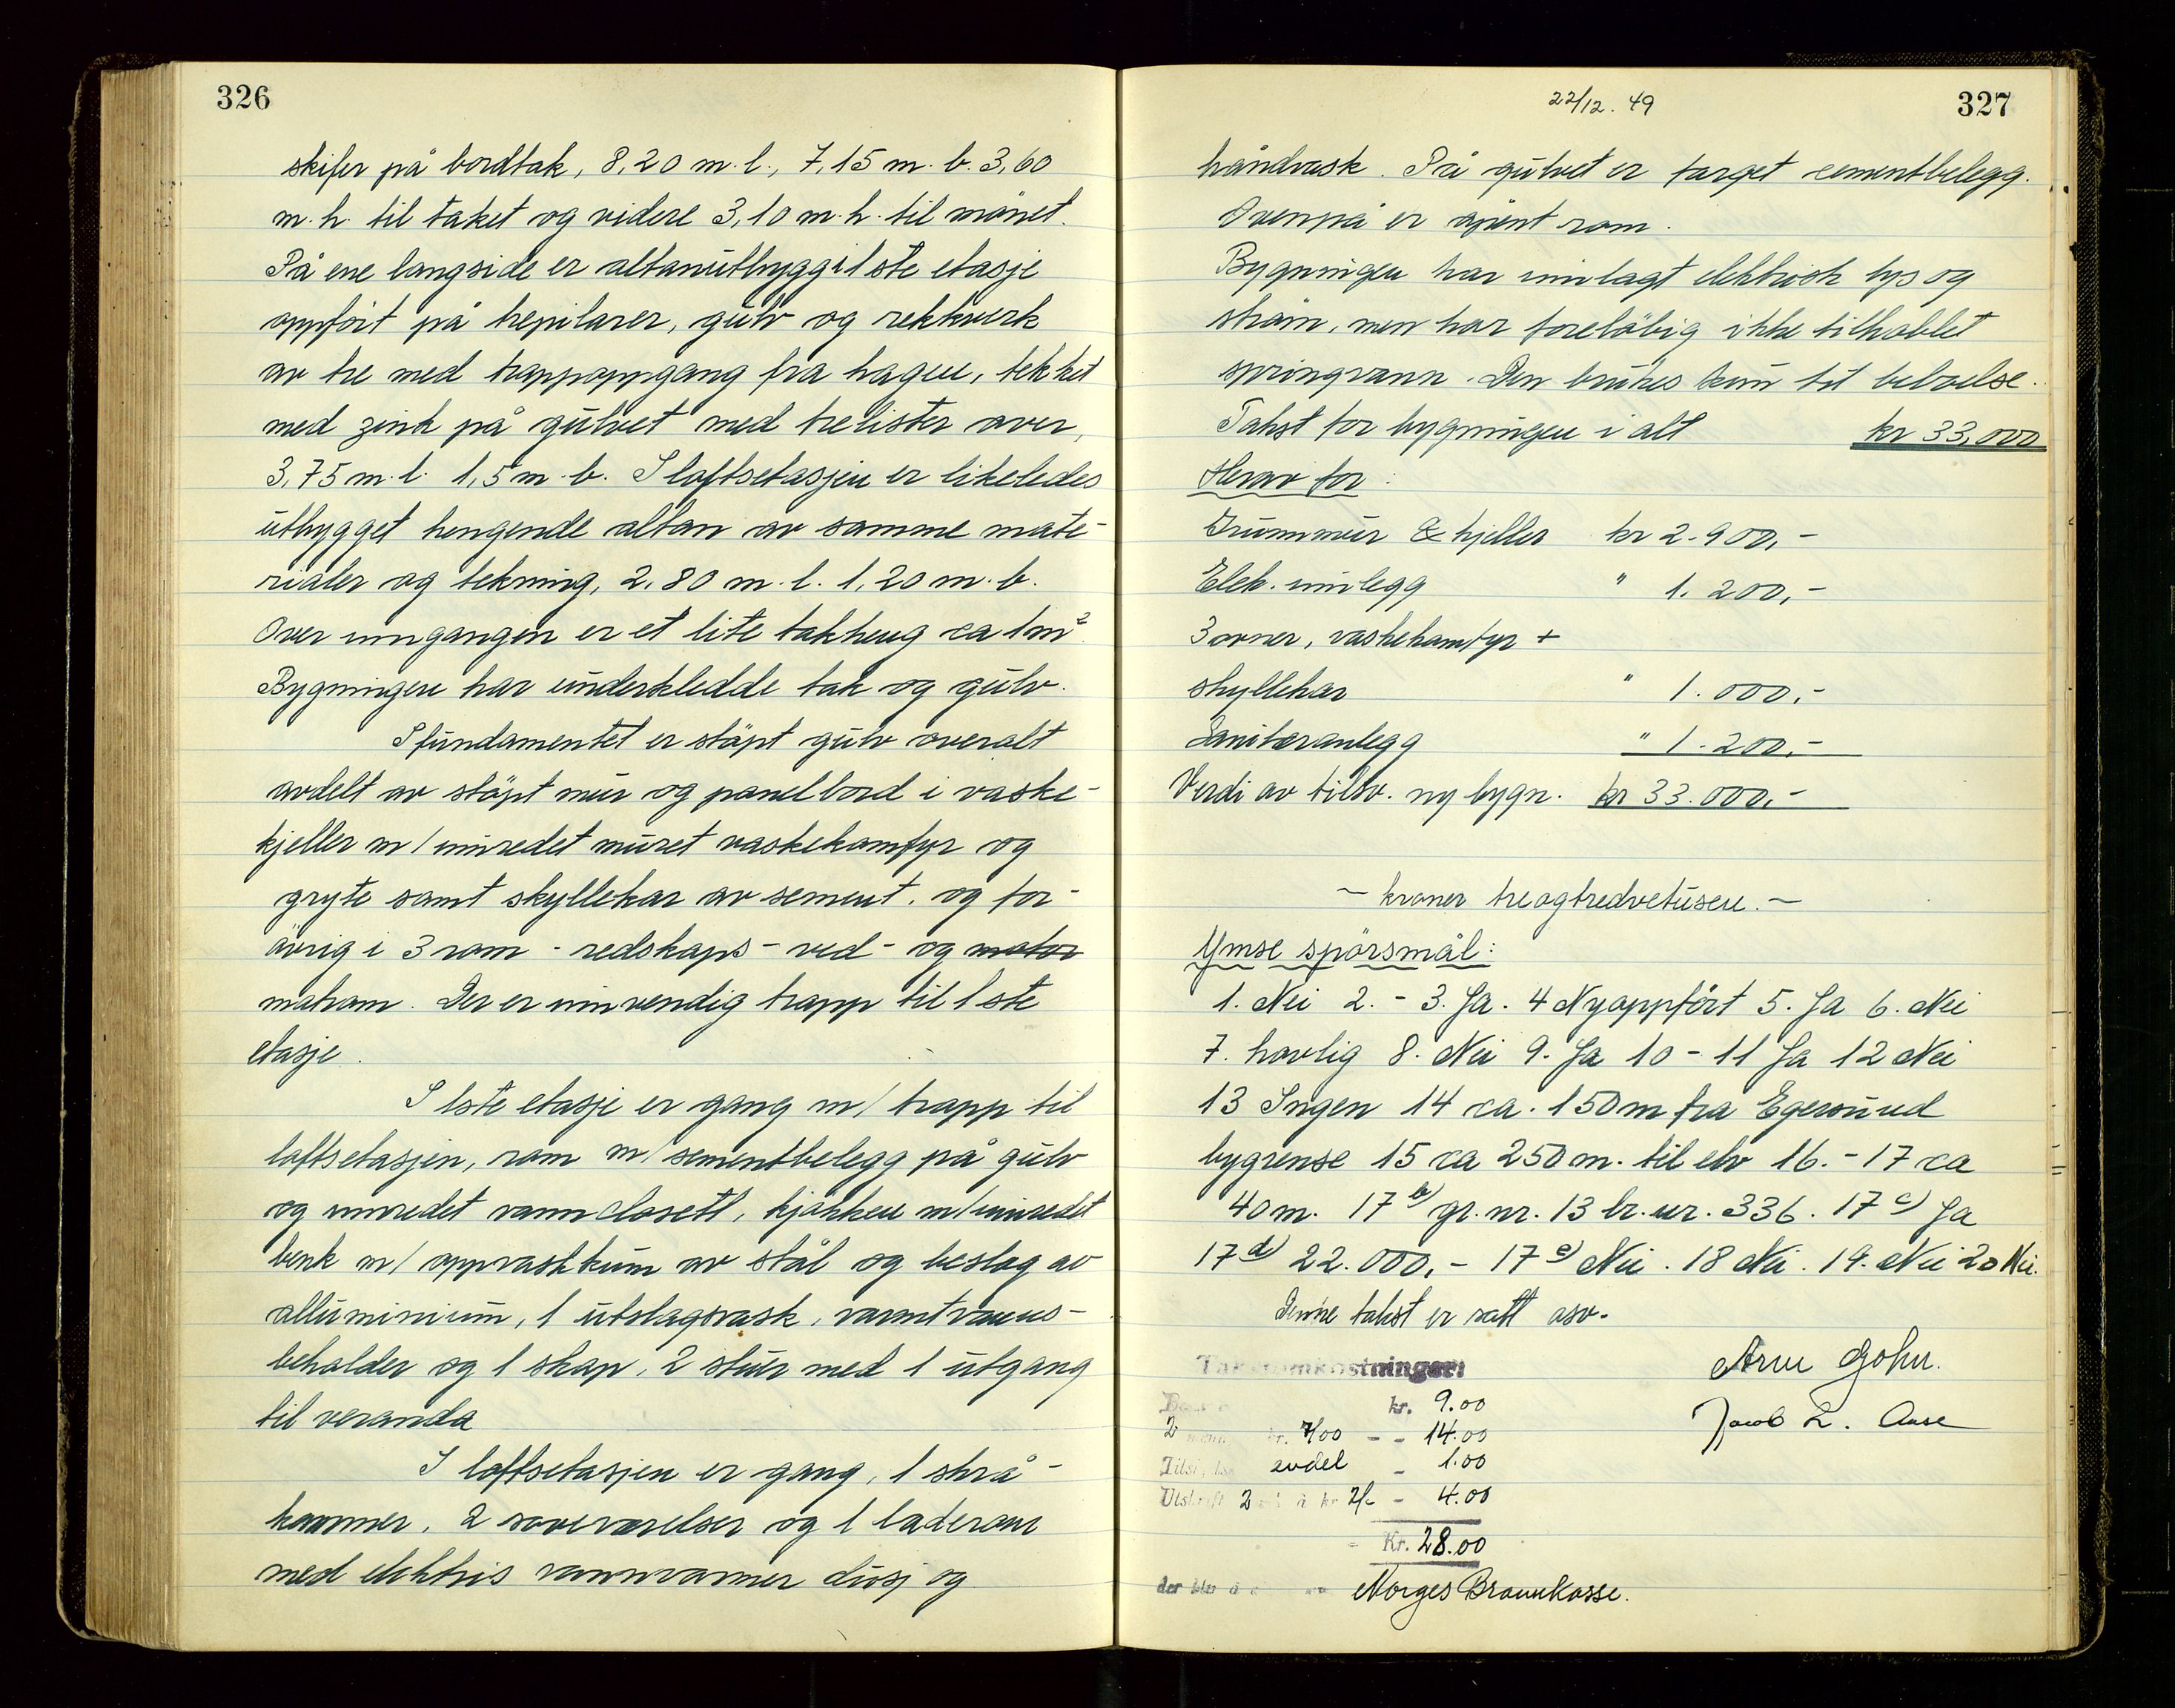 326
skifer på bordtak, 8,20 m. l., 7,15 m. b. 3,60
m. h. til taket og videre 3,10 m. h. til mönet.
På ene langside er altanutbygg i 1ste etasje
oppfört på trepilarer, gulv og rekkverk
av tre med trappoppgang fra hagen, tekket
med zink på gulvet med trelister over,
3,75 m. l. 1,5 m. b. I loftsetasjen er likeledes
utbygget hengende altan av samme mate-
rialer og tekning, 2,80 m. l. 1,20 m. b.
Over inngangen er et lite takheng ca 1m²
Bygningen har underkledde tak og gulv.
I fundamentet er stöpt gulv overalt
avdelt av stöpt mur og panelbord i vaske-
kjeller m/ innredet muret vaskekomfyr og
gryte samt skyllekar av sement, og for-
övrig i 3 rom - redskaps- ved- og mator
matrom. Der er innvendig trapp til 1ste
etasje.
I 1ste etasje er gang m/ trapp til
loftsetasjen, rom m/ sementbelegg på gulv
og innredet vannclosett, kjökken m/ innredet
benk m/ oppvaskkum av stål og beslag av
alluminium, 1 utslagsvask, varmtvanns-
beholder og 1 skap, 2 stuer med 1 utgang
til veranda
I loftsetasjen er gang, 1 skrå-
kammer, 2 soveværelser og 1 baderom
med elektris vannvarmer dusj og
22/12. 49
327
håndvask. På gulvet er farget cementbelegg.
Ovenpå er åpent rom.
Bygningen har innlagt elektrisk lys og
ström, men har forelöbig ikke tilkoblet
springvann. Den brukes kun til beboelse.
Takst for bygningen i alt kr 33,000
Herav for:
Grunnmur & kjeller kr 2.900,-
Elek. innlegg " 1.200,-
3 ovner, vaskekomfyr +
skyllekar " 1.000,-
Sanitæranlegg " 1.200,-
Verdi av tilsv. ny bygn. kr 33.000,-
~ kroner treogtredvetusen. ~
Ymse spörsmål:
1. Nei 2. - 3. Ja. 4 Nyoppfört 5. Ja 6. Nei
7. havlig 8. Nei 9. Ja 10 - 11 Ja 12 Nei
13 Ingen 14 ca. 150 m fra Egersund
bygrense 15 ca 250 m. til elv 16. - 17 ca
40 m. 17 b) gr. nr. 13 br. nr. 336. 17 c) Ja
17 d) 22.000,- 17 e) Nei. 18 Nei. 19. Nei 20 Nei.
Denne takst er satt osv.
Takstomkostninger:
Arne Gohn.
kr. 9.00
Jacob L. Aase
2 kr. 7/00 - - 14.00
andel - 1.00
Utskrift 2 à kr 2/- - 4.00
= Kr. 28.00
Norges Brannkasse.